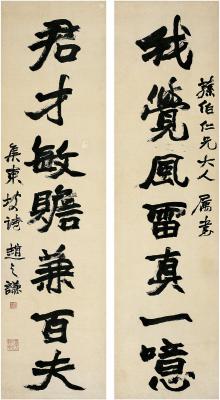 我覺風雷真一噫
蓀伯仁兄大人屬書
君才敏贍兼百夫
集東坡詩趙之謙